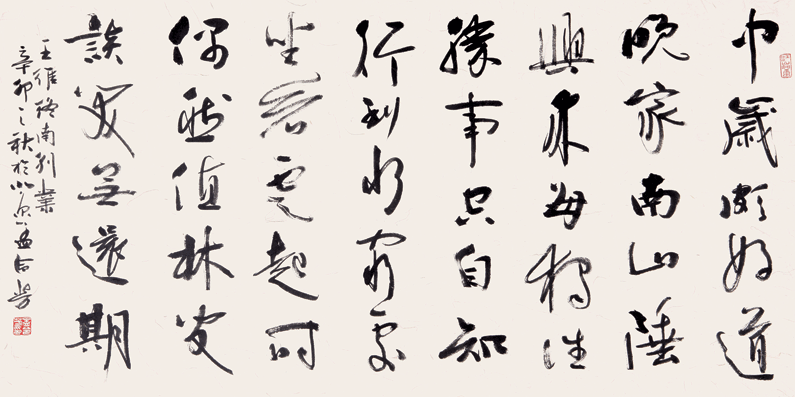 中歲頗好道
晚家南山陲
興來每獨往
勝事空自知
行到水窮處
坐看雲起時
偶然值林叟
談笑無還期
王維終南別業
辛卯之秋於北京